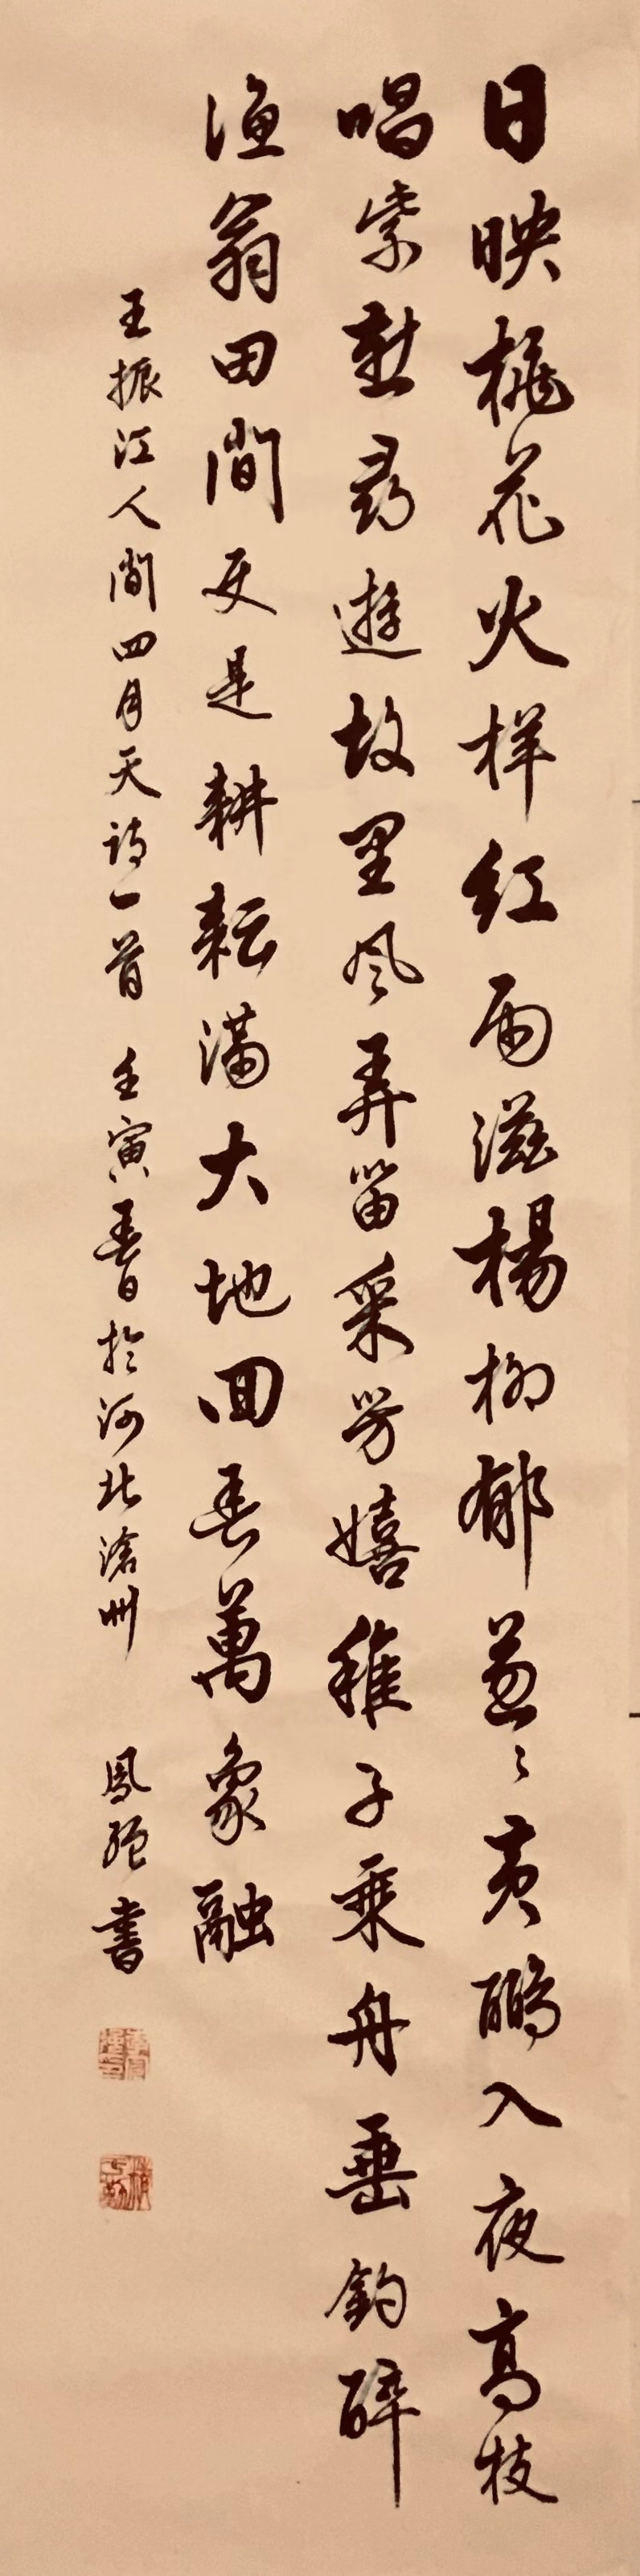 日映桃花火样红雨滋楊柳郁葱〻黄鹂入夜高枝
唱紫燕尋遊故里风弄笛采芳嬉稚子乘舟垂釣醉
渔翁田間更是耕耘满大地回春萬象融
王振江人間四月天诗一首 壬寅春日於河北滄州 鳳强書